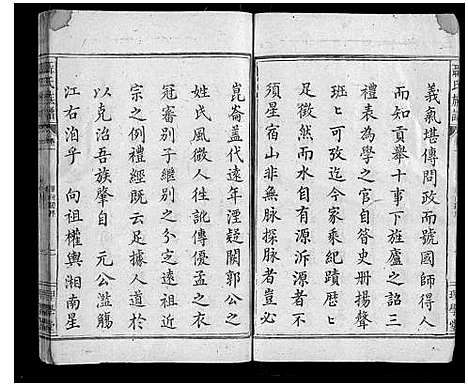 聶氏族譜
義氣堪傳問政而號國師得人
而知貢舉十事下旌廬之詔三
禮表為學之官自答史册揚聲
班ヒ可攷迄今家乘紀蹟歷ヒ
是徵然而水自有源泝源者不
須星宿山非無脉探脉者豈必
崑崙葢代遠年湮疑闕郭公之
姓氏風微人徃訛傳優孟之衣
冠審别子繼别之分定遠祖近
宗之例禮經既云足據人道於
以克治吾族肇自　元公濫觴
江右泊乎　向祖權輿湘南星
聶氏族譜